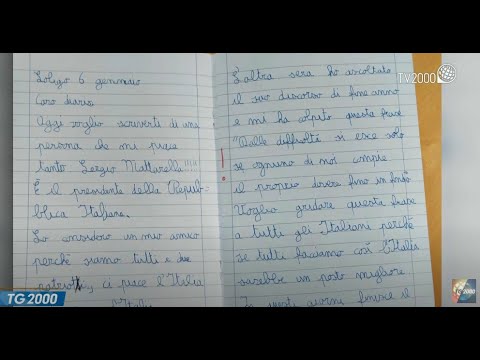 Lonigo 6 gennaio
Caro diario
Oggi voglio scriverti di una
persona che mi piace
tanto Sergio Mattarella!!!!
È il presidente della Repub-
blica Italiana.
Lo considero un mio amico
perché siamo tutti e due
patrioti, ci piace l'Italia
l'Italia
L'altra sera ho ascoltato
il suo discorso di fine anno
e mi ha colpito questa frase
"Dalle difficoltà si esce solo
se ognuno di noi compie
il proprio dovere fino in fondo"
Voglio gridare questa frase
a tutti gli Italiani perché
se tutti facciamo così l'Italia
sarebbe un posto migliore
giorni finisce il
TV2000
TG 2000
TG 2000